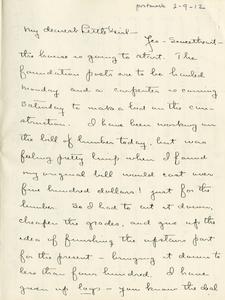 postmark 2-9-12
My dearest Little Girl -
Yes - Sweetheart -
the house is going to start. The
foundation posts are to be hauled
Monday and a carpenter is coming
Saturday to make a bid on the con-
struction. I have been working on
the bill of lumber today, but was
feeling pretty limp when I found
my original bill would cost over
five hundred dollars! just for the
lumber. So I had to cut it down,
cheapen the grades, and give up the
idea of finishing the upstairs part
for the present - bringing it down to
less than four hundred. I have
given up logs - you know the deal